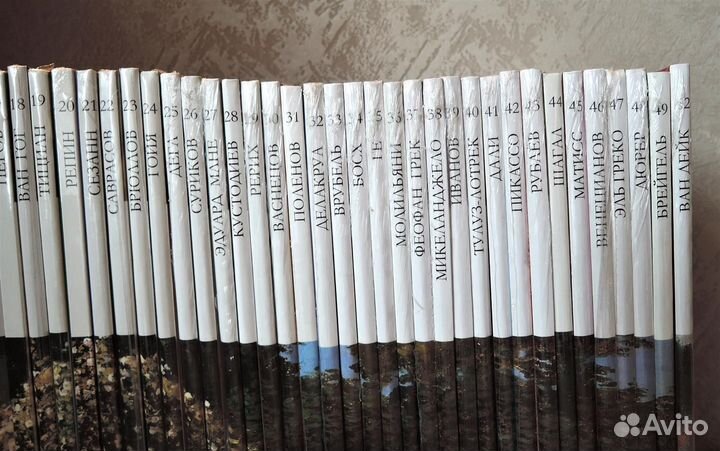 18 ВАН ГОГ
19 ТИЦИАН
20 РЕПИН
21 СЕЗАНН
22 САВРАСОВ
23 БРЮЛЛОВ
24 ГОЙЯ
25 ДЕГА
26 СУРИКОВ
27 ЭДУАРД МАНЕ
28 КУСТОДИЕВ
29 РЕРИХ
30 ВАСНЕЦОВ
31 ПОЛЕНОВ
32 ДЕЛАКРУА
33 ВРУБЕЛЬ
34 БОСХ
35 ГЕ
36 МОДИЛЬЯНИ
37 ФЕОФАН ГРЕК
38 МИКЕЛАНДЖЕЛО
39 ИВАНОВ
40 ТУЛУЗ-ЛОТРЕК
41 ДАЛИ
42 ПИКАССО
43 РУБЛЁВ
44 ШАГАЛ
45 МАТИСС
46 ВЕНЕЦИАНОВ
47 ЭЛЬ ГРЕКО
48 ДЮРЕР
49 БРЕЙГЕЛЬ
52 ВАН ДЕЙК
Avito